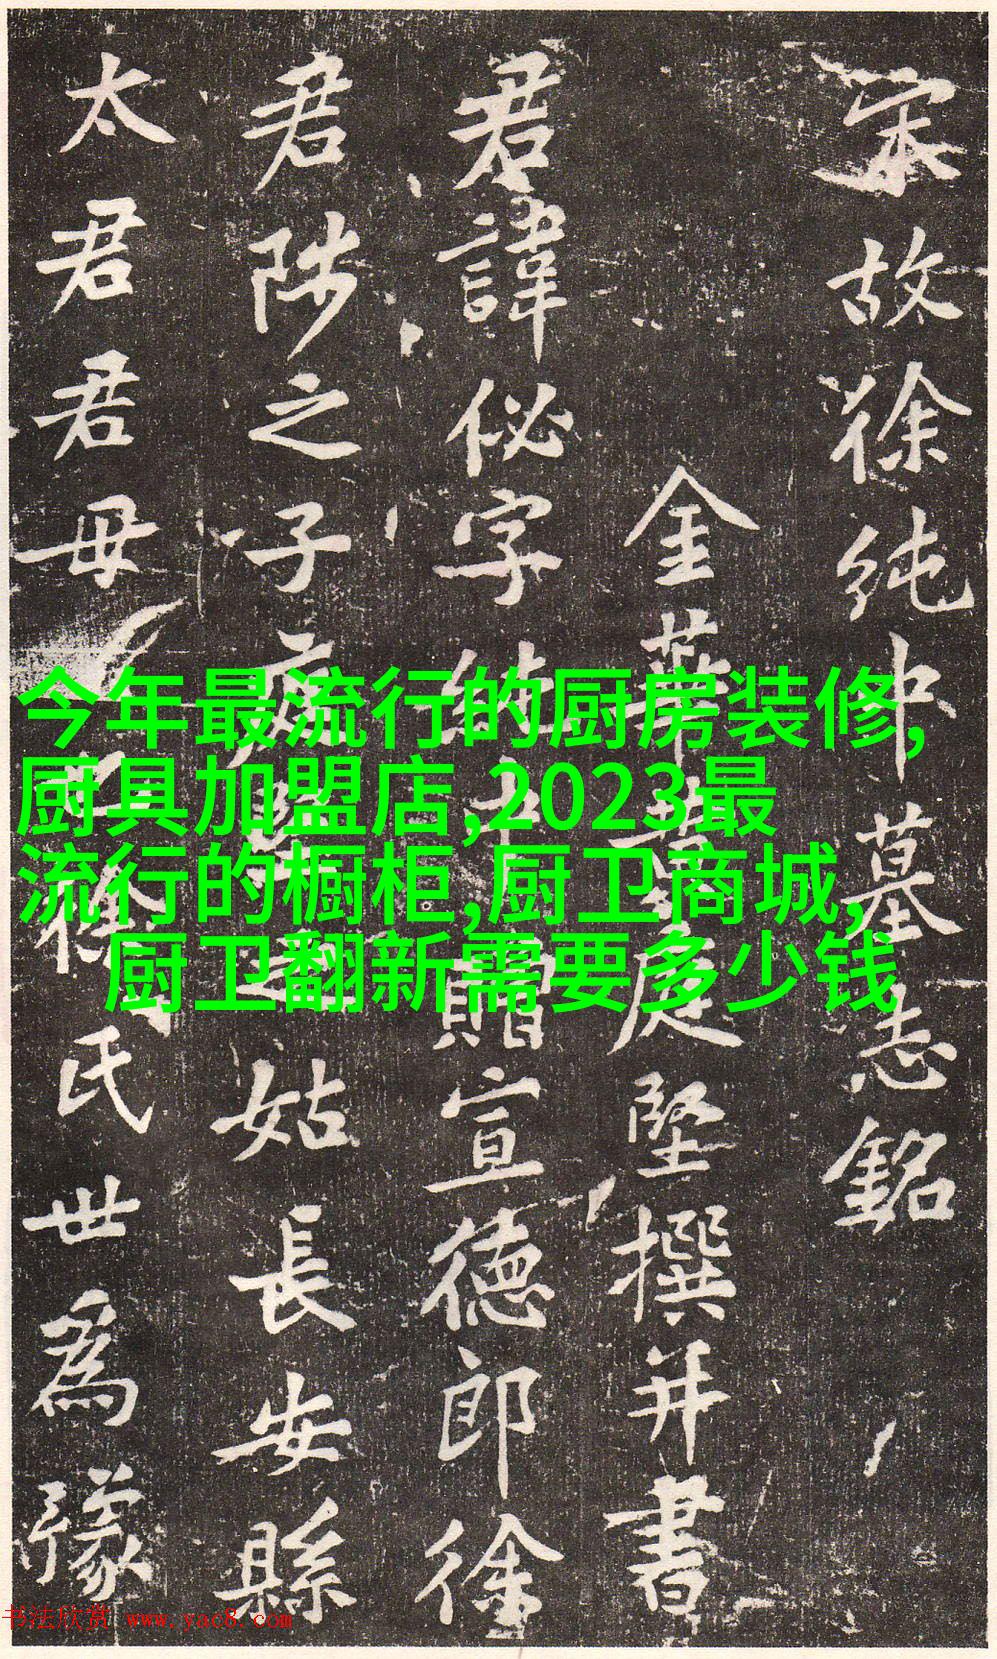 宋故徐純中墓志銘
金華黄庭堅撰并書
君諱佖字純中贈宣德郎徐
君陟之子姑長安縣
太君君母徐氏世爲豫
今年最流行的厨房装修,
厨具加盟店,2023最
流行的橱柜,厨卫商城,
厨卫翻新需要多少钱
书法欣赏 www.yac8.com